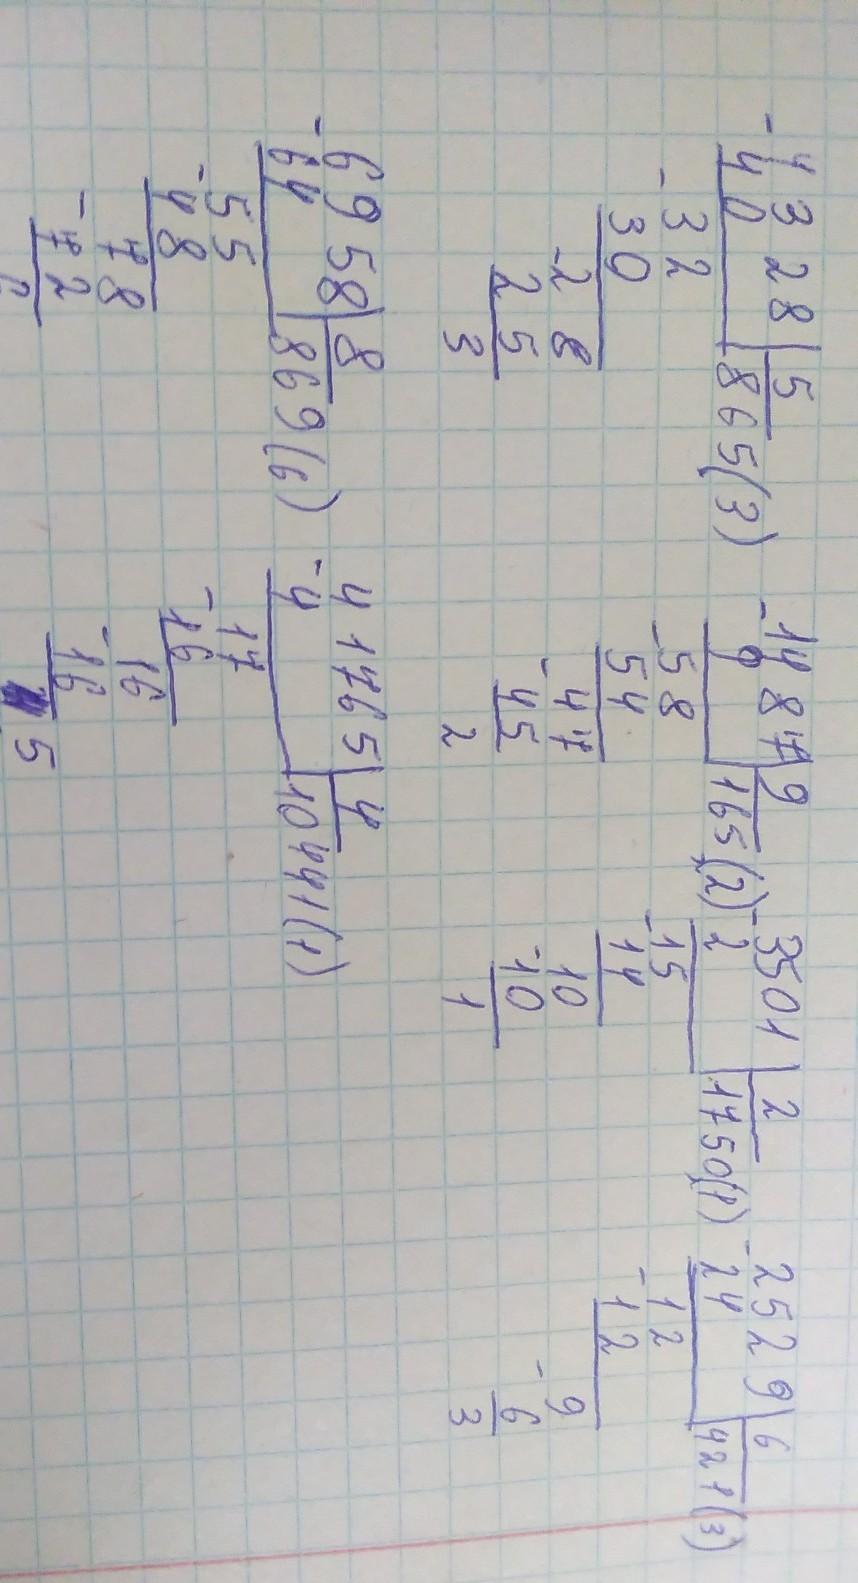 -4328|5 -1487|9 -3501|2 -2529|6
40 865(3) 9 165(2) 2 1750(1) 24 421(3)
-32 -58 -15 -12
30 54 14 12
-28 -47 10 -9
25 45 -10 6
3 2 1 3
-6958|8 -41765|4
64 869(6) 4 10441(1)
-55 17
48 -16
78 16
-72 -16
5